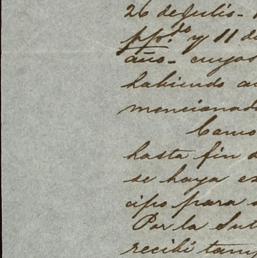 26 de Julio -
ppdo. y 11 de
año - cuyos
habiendo
mencionad
Como
hasta fin
se haya es
cipo para
Por la Sub
recibí tam